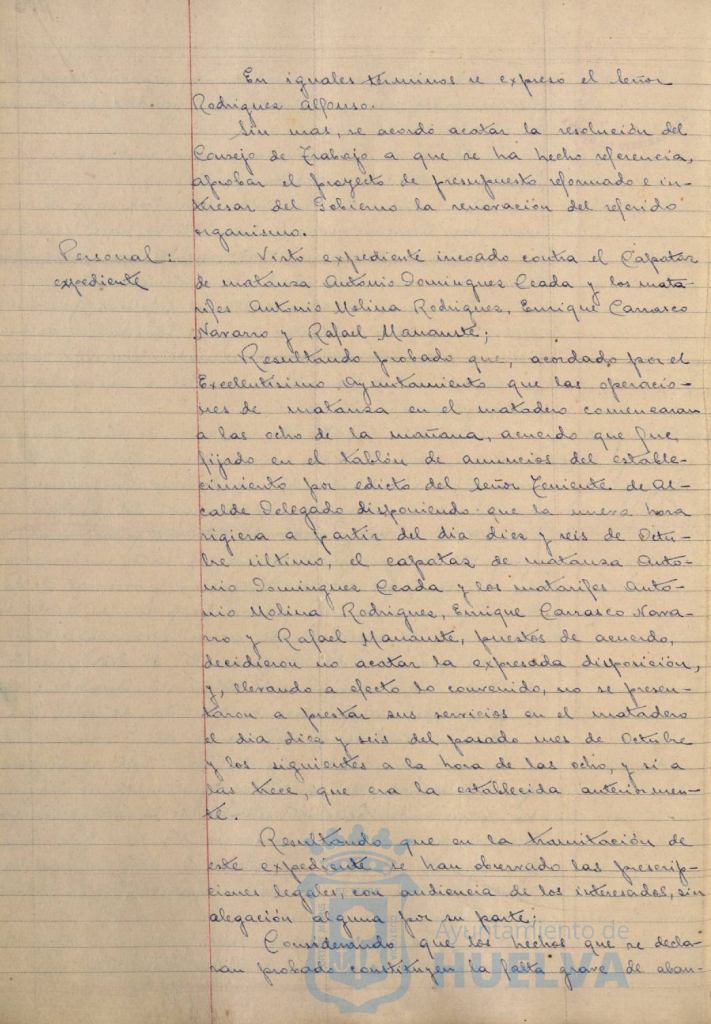 En iguales términos se expresó el Señor
Rodriguez Alfonso.
Sin mas, se acordó acatar la resolución del
Consejo de Trabajo a que se ha hecho referencia,
aprobar el proyecto de presupuesto reformado e in-
tresar del Gobierno la renovación del referido
organismo.
Personal:
expediente
Visto expediente incoado contra el Capataz
de matanza Antonio Dominguez Ceada y los mata-
rifes Antonio Molina Rodriguez, Enrique Carrasco
Navarro y Rafael Manauste;
Resultando probado que, acordado por el
Excelentísimo Ayuntamiento que las operacio-
nes de matanza en el matadero comenzaran
a las ocho de la mañana, acuerdo que fue
fijado en el tablón de anuncios del estable-
cimiento por edicto del Señor Teniente de Al-
calde Delegado disponiendo que la nueva hora
rigiera a partir del dia diez y seis de Octu-
bre último, el capataz de matanza Anto-
nio Dominguez Ceada y los matarifes Anto-
nio Molina Rodriguez, Enrique Carrasco Nava-
rro y Rafael Manauste, puestos de acuerdo,
decidieron no acatar la expresada disposición,
y, llevando a efecto lo convenido, no se presen-
taron a prestar sus servicios en el matadero
el dia diez y seis del pasado mes de Octubre
y los siguientes a la hora de las ocho, y si a
las trece, que era la establecida anteriormen-
te.
Resultando que en la tramitación de
este expediente se han observado las prescrip-
ciones legales, con audiencia de los interesados, sin
alegación alguna por su parte;
Considerando que los hechos que se decla-
ran probado constituyen la falta grave de aban-
Ayuntamiento de
HUELVA